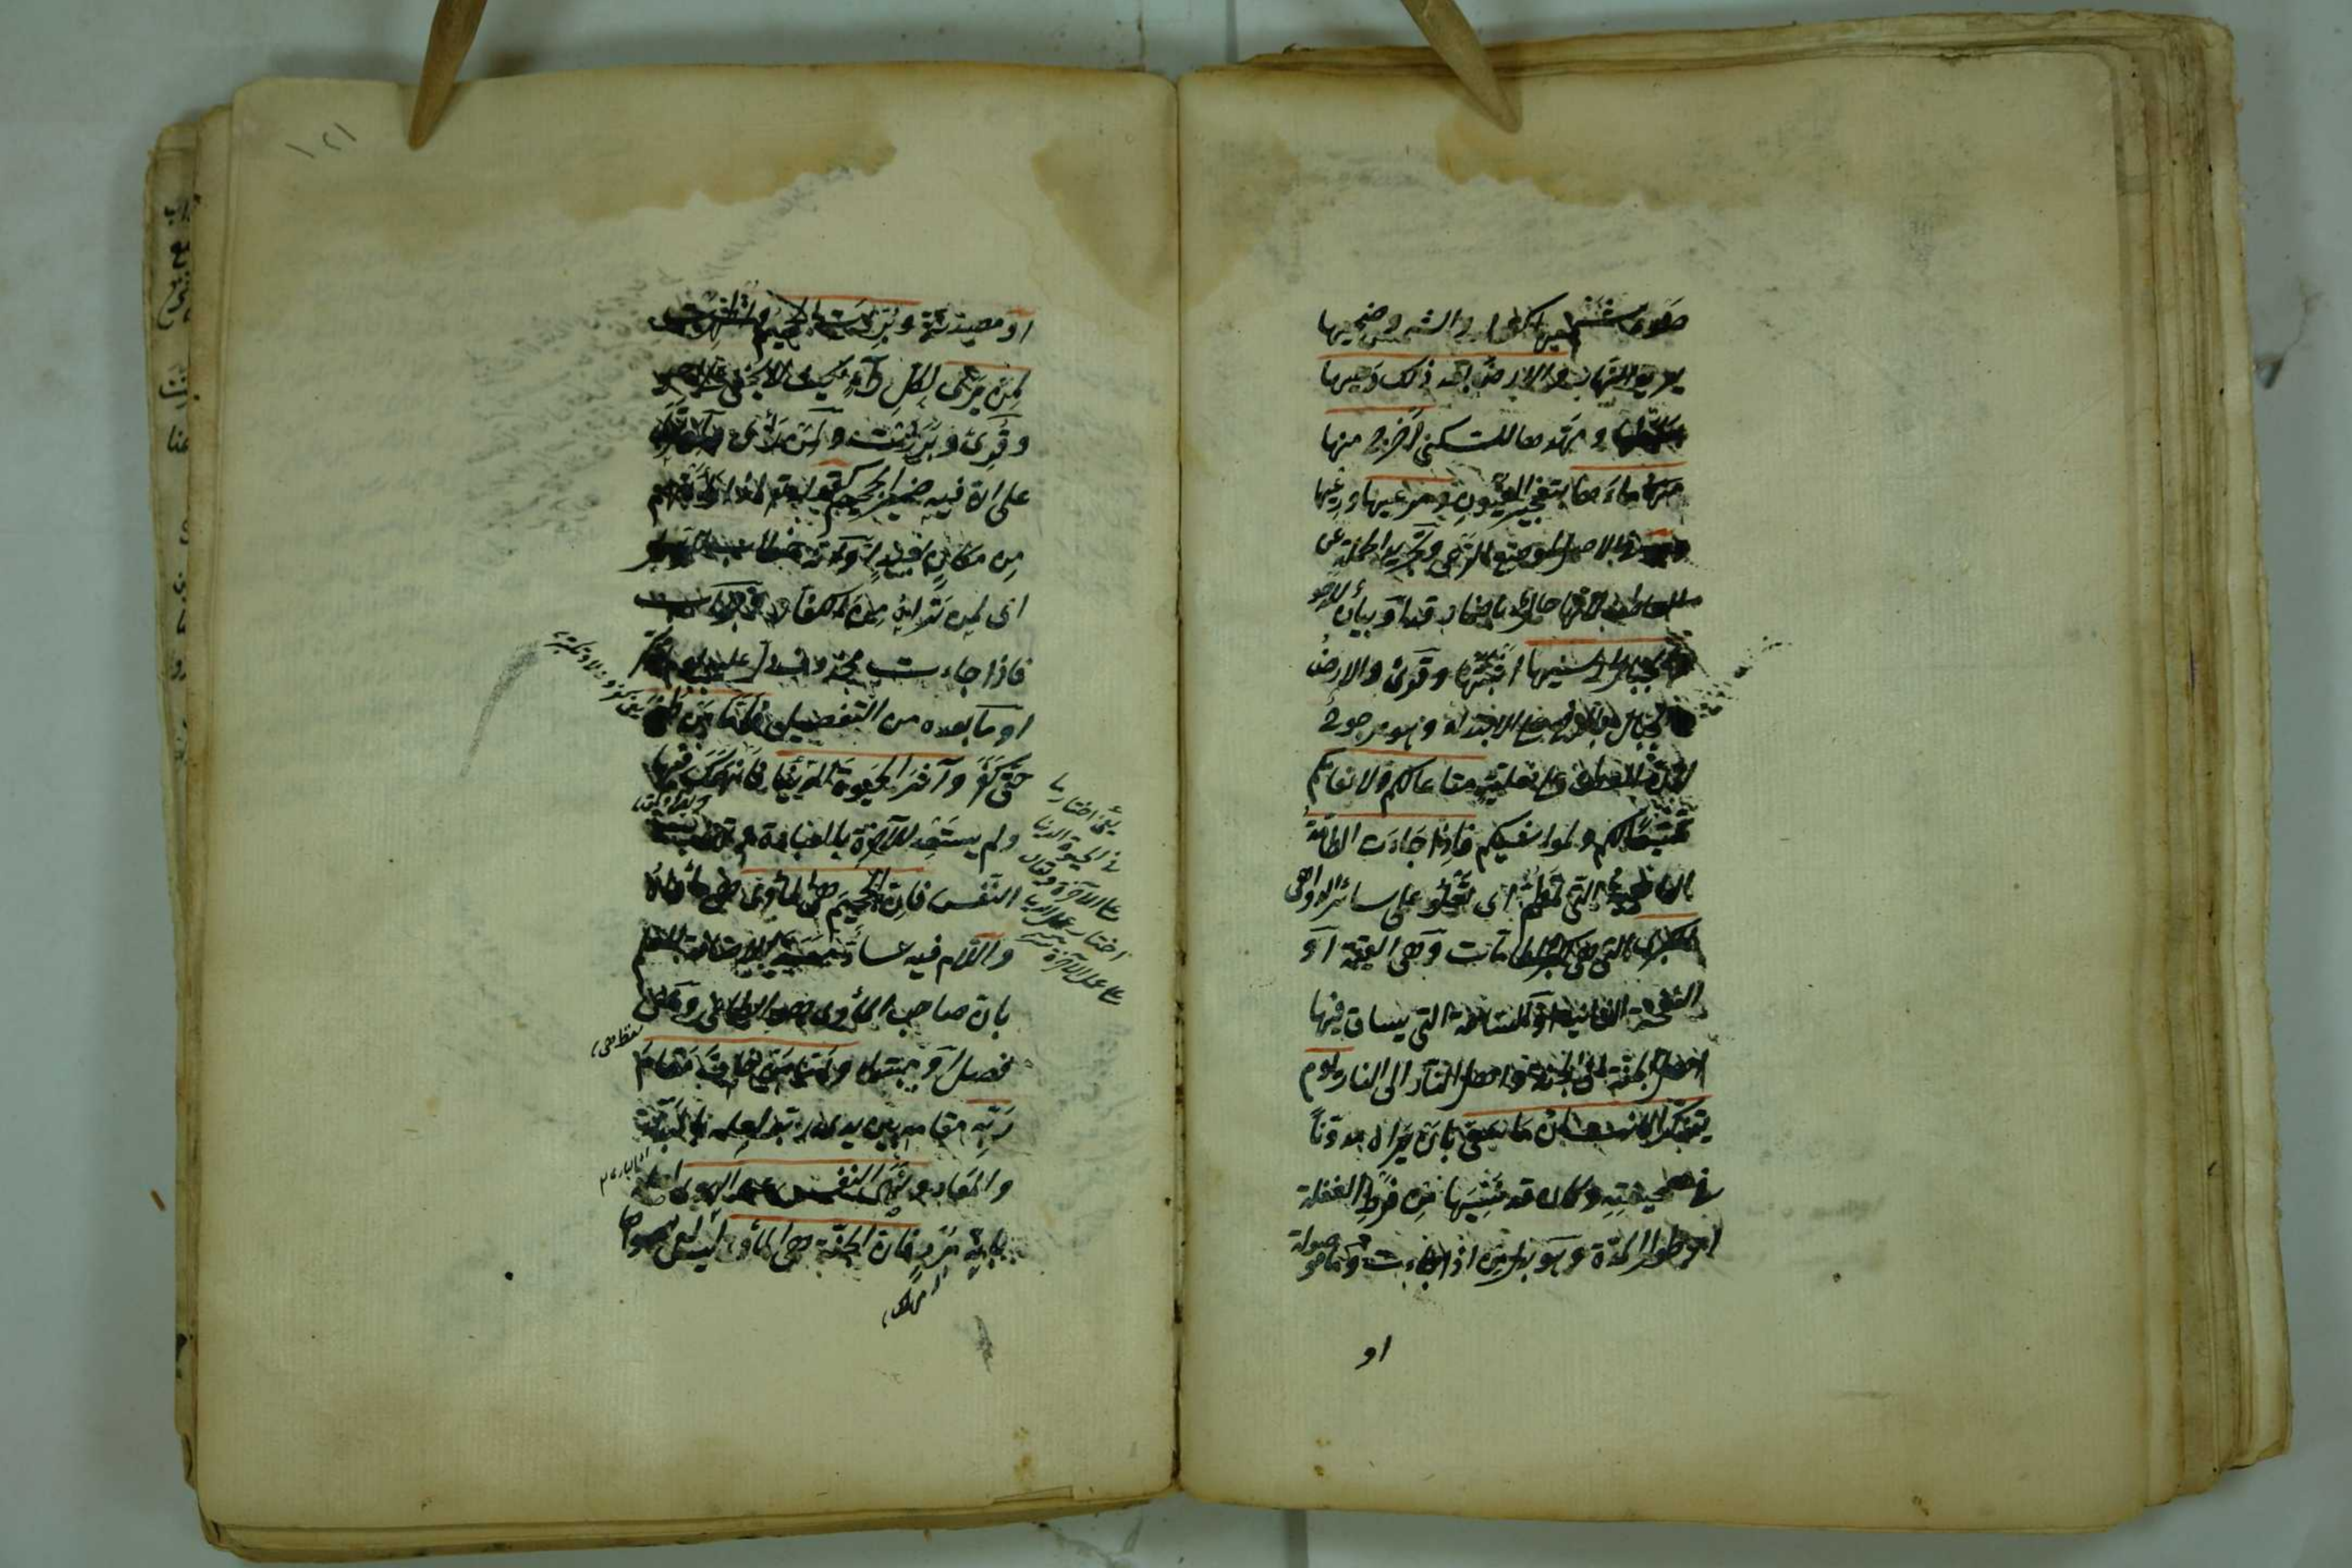 ضوء شمسها كقوله والشمس وضحيها
يريد النهار والارض بعد ذلك دحيها
بسطها و مهدها للسكنى اخرج منها
منها ماءها بتفجير العيون ومرعيها ورعيها
وهو في الاصل لموضع الرعي وتجريد الجملة عن
العاطف لانها حال باضمار قد او بيان للدحو
والجبال ارسيها اثبتها وقرئ والارض
والجبال بالرفع على الابتداء وهو مرجوح
لان العطف على فعلية متاعا لكم ولانعامكم
تمتيعا لكم ولمواشيكم فاذا جاءت الطامة
الداهية التي تطم اى تعلو على سائر الدواهى
الكبرى التي هى اكبر الطامات وهى القيمة او
النفخة الثانية او الساعة التي يساق فيها
اهل الجنة الى الجنة واهل النار الى النار يوم
يتذكر الانسان ما سعى بان يراه مدونا
في صحيفته وكان قد نسيها من فرط الغفلة
او طول المدة وهو بدل من اذا جاءت وما موصولة
او
او مصدرية وبرزت الجحيم واظهرت
لمن يرى لكل راء بحيث لا يخفى على احد
وقرئ وبرزت ولمن رأى ولمن ترى
على ان فيه ضمير الجحيم كقوله تع اذا رأتهم
من مكان بعيد او انه خطاب للرسول
اى لمن تراه من الكفار وجواب
فاذا جاءت محذوف دل عليه يوم يتذكر
او ما بعده من التفصيل فاما من طغى
حتى كفر وآثر الحيوة الدنيا فانهمك فيها
ولم يستعد للآخرة بالعبادة وتهذيب
النفس فان الجحيم هى المأوى هى مأواه
واللام فيه سادة مسد الاضافة للعلم
بان صاحب المأوى هو الطاغى وهى
فصل او مبتدأ واما من خاف مقام
ربه مقامه بين يدى ربه لعلمه بالمبدأ
والمعاد ونهى النفس عن الهوى لعلمه
بانه مرد فان الجنة هى المأوى ليس له سواها
يعنى اختارها
في الحيوة الدنيا
على الآخرة وقال
اختار عمل الدنيا
على عمل الآخرة
لفظ هى